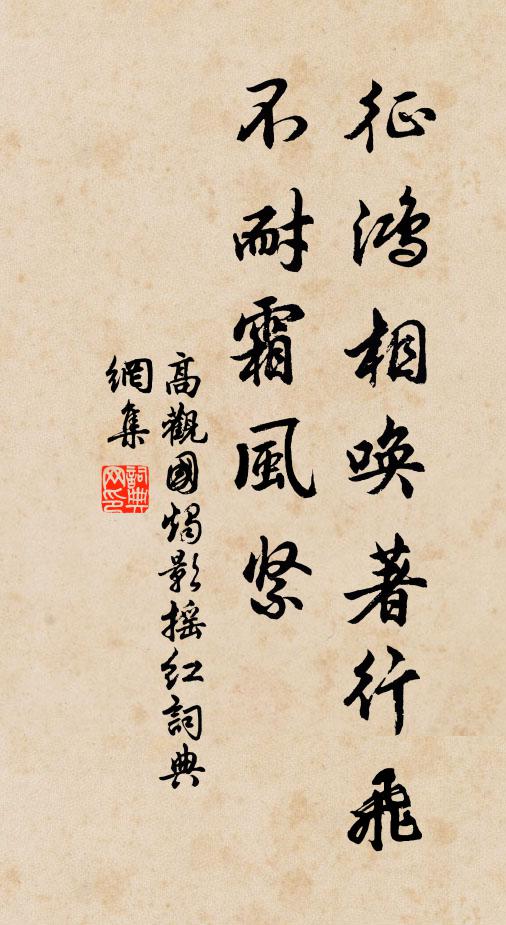 征鴻相喚著行飛
不耐霜風緊
高觀國燭影摇红詞典
網集
詞典網印